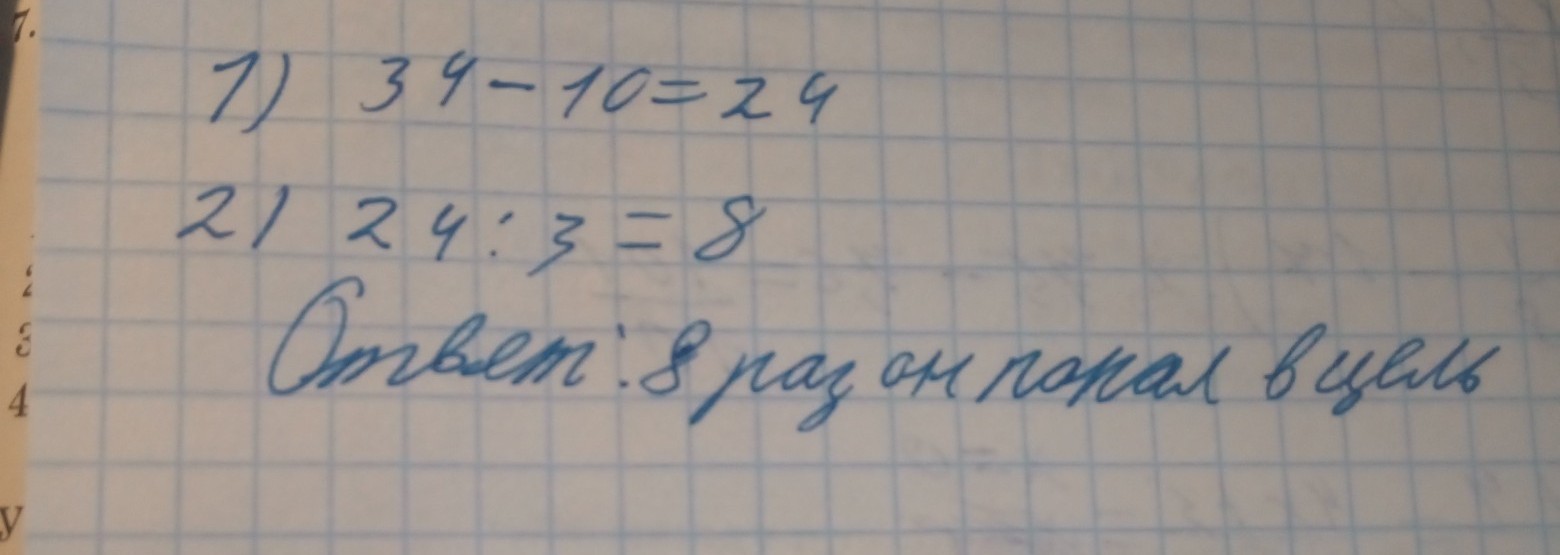 7.
1) 34-10=24
2) 24:3=8
3
Ответ: 8 раз он попал в цель
4
у